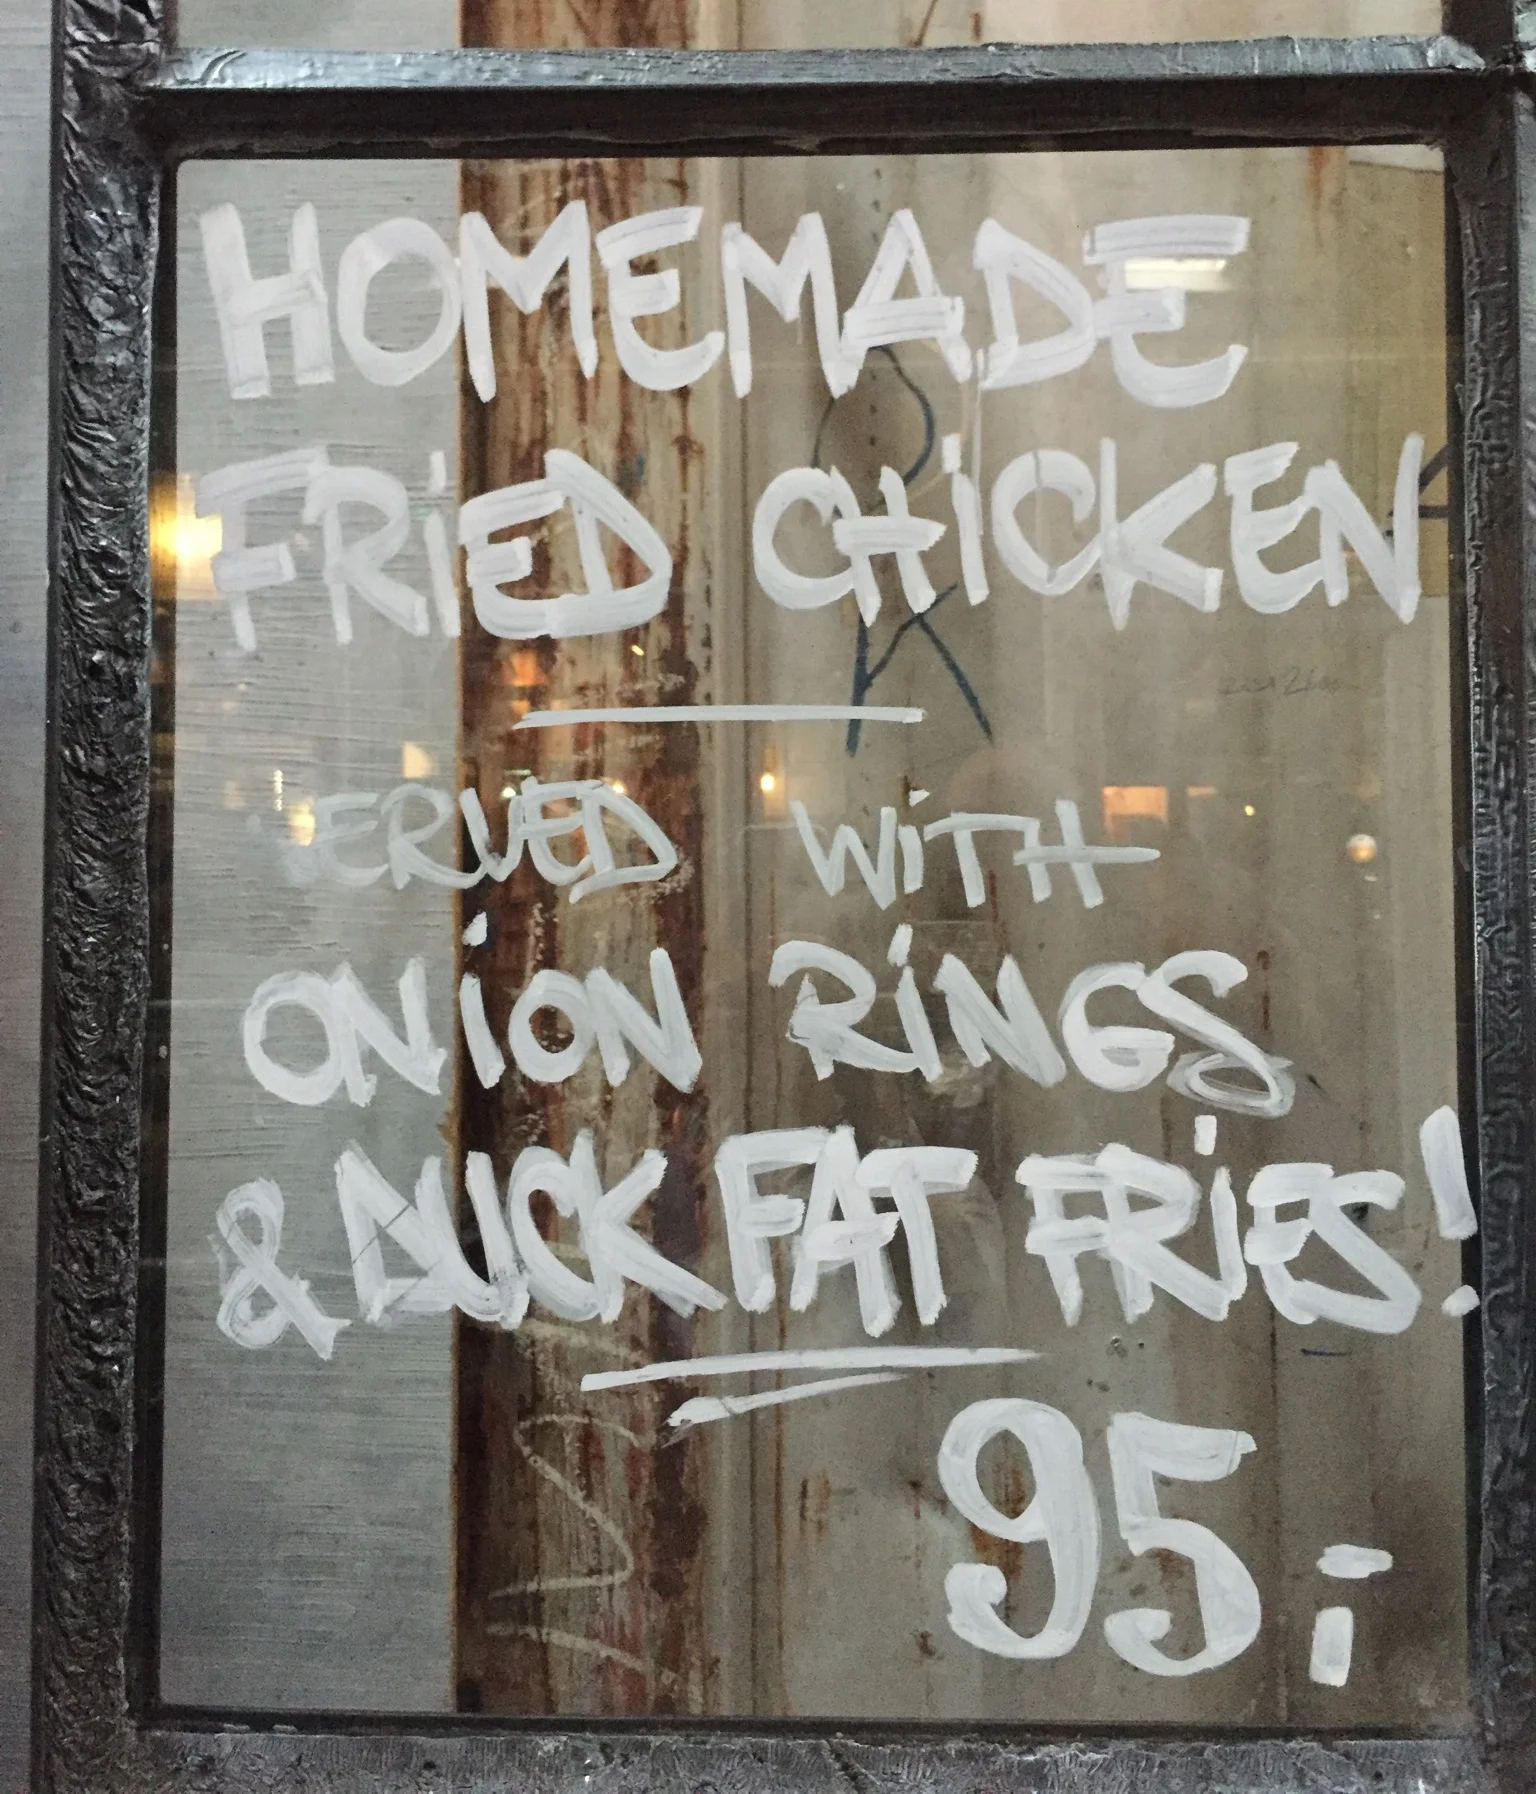 HOMEMADE
FRiED CHiCKEN
SERVED WiTH
ONiON RiNGS
& DUCK FAT FRiES!
95:-